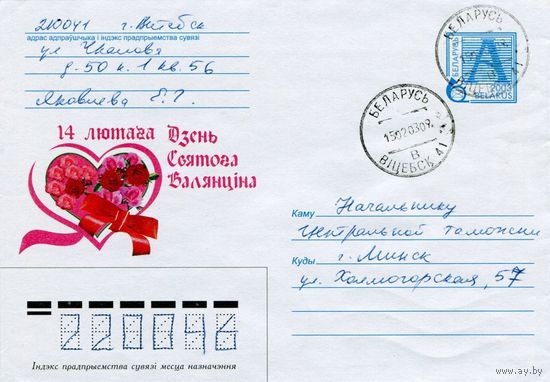 210041 г. Витебск
адрас адпраўшчыка і індэкс прадпрыемства сувязі
ул Чкалова
д-50 к. 1 кв. 56
Яковлева Е. Г.
БЕЛАРУСЬ
A
2003
BELARUS
БЕЛАРУСЬ
БЕЛАРУСЬ
15020309
В
ВІЦЕБСК 41
14 лютага Дзень
Святога
Валянціна
Каму Начальнику
Центральной таможни
Куды г. Минск
ул. Холмогорская, 57
220046
Індэкс прадпрыемства сувязі месца назначэння
www.ay.by